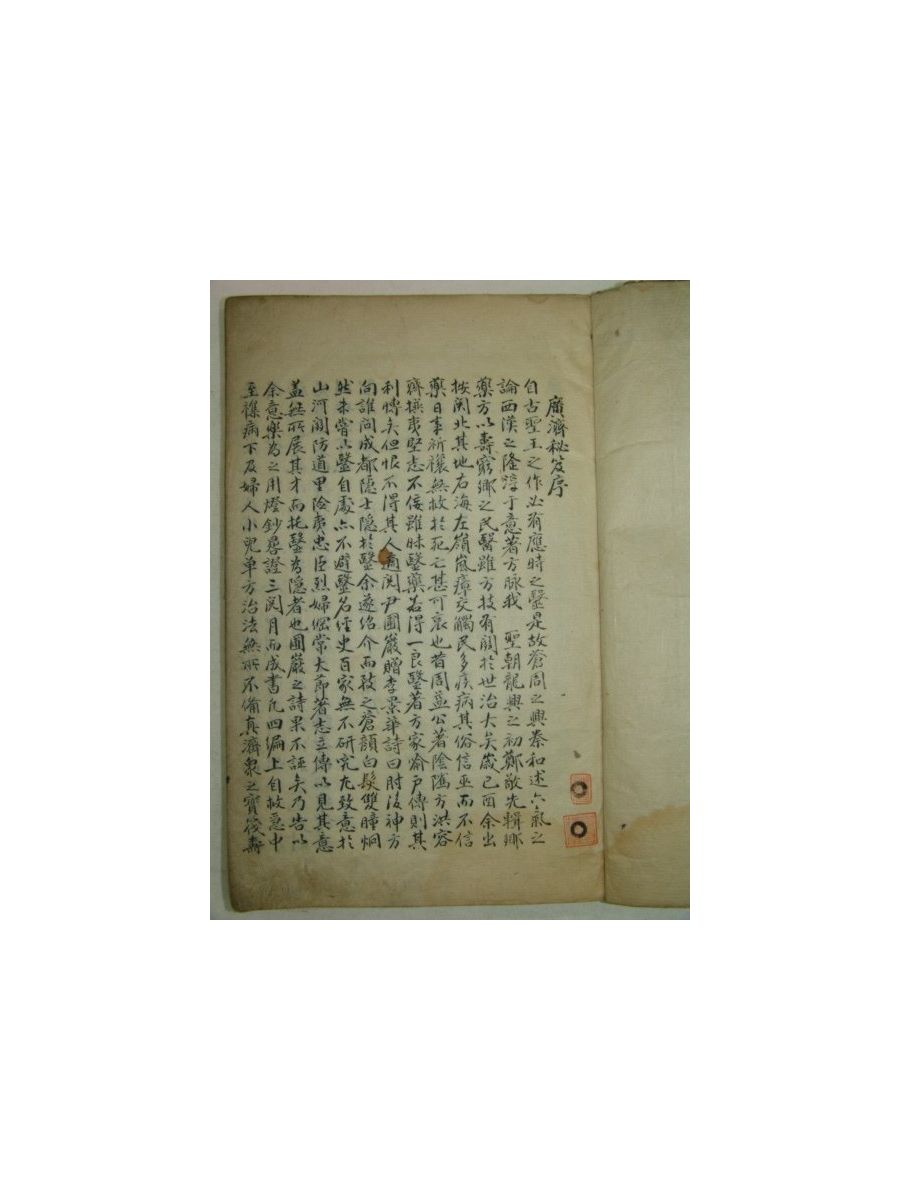 廣濟秘笈序
自古聖王之作必有應時之醫是故蒼周之興秦和述六氣之
論西漢之隆淳于意著方脉我 聖朝龍興之初鄭敬先輯鄉
藥方以壽窮鄉之民醫雖方技有關於世治大矣歲己酉余出
按關北其地右海左嶺嵐瘴交觸民多疾病其俗信巫而不信
藥日事祈禳無救於死亡甚可哀也昔周益公著陰隲方洪容
齋撰夷堅志不佞雖昧醫藥若得一良醫著方家喩戶傳則其
利博矣但恨不得其人適閱尹圃巖贈李景華詩曰肘後神方
向誰問成都隱士隱於醫余遂紹介而致之蒼顔白髮雙瞳烱
然未嘗以醫自處亦不避醫名經史百家無不硏究尤致意於
山河關防道里險夷忠臣烈婦倫常大節著志立傳以見其意
盖無所展其才而托醫爲隱者也圃巖之詩果不誣矣乃告以
余意樂爲之用燈鈔晷證三閱月而成書凡四編上自救急中
至襍病下及婦人小兒單方治法無所不備眞濟衆之寶筏壽